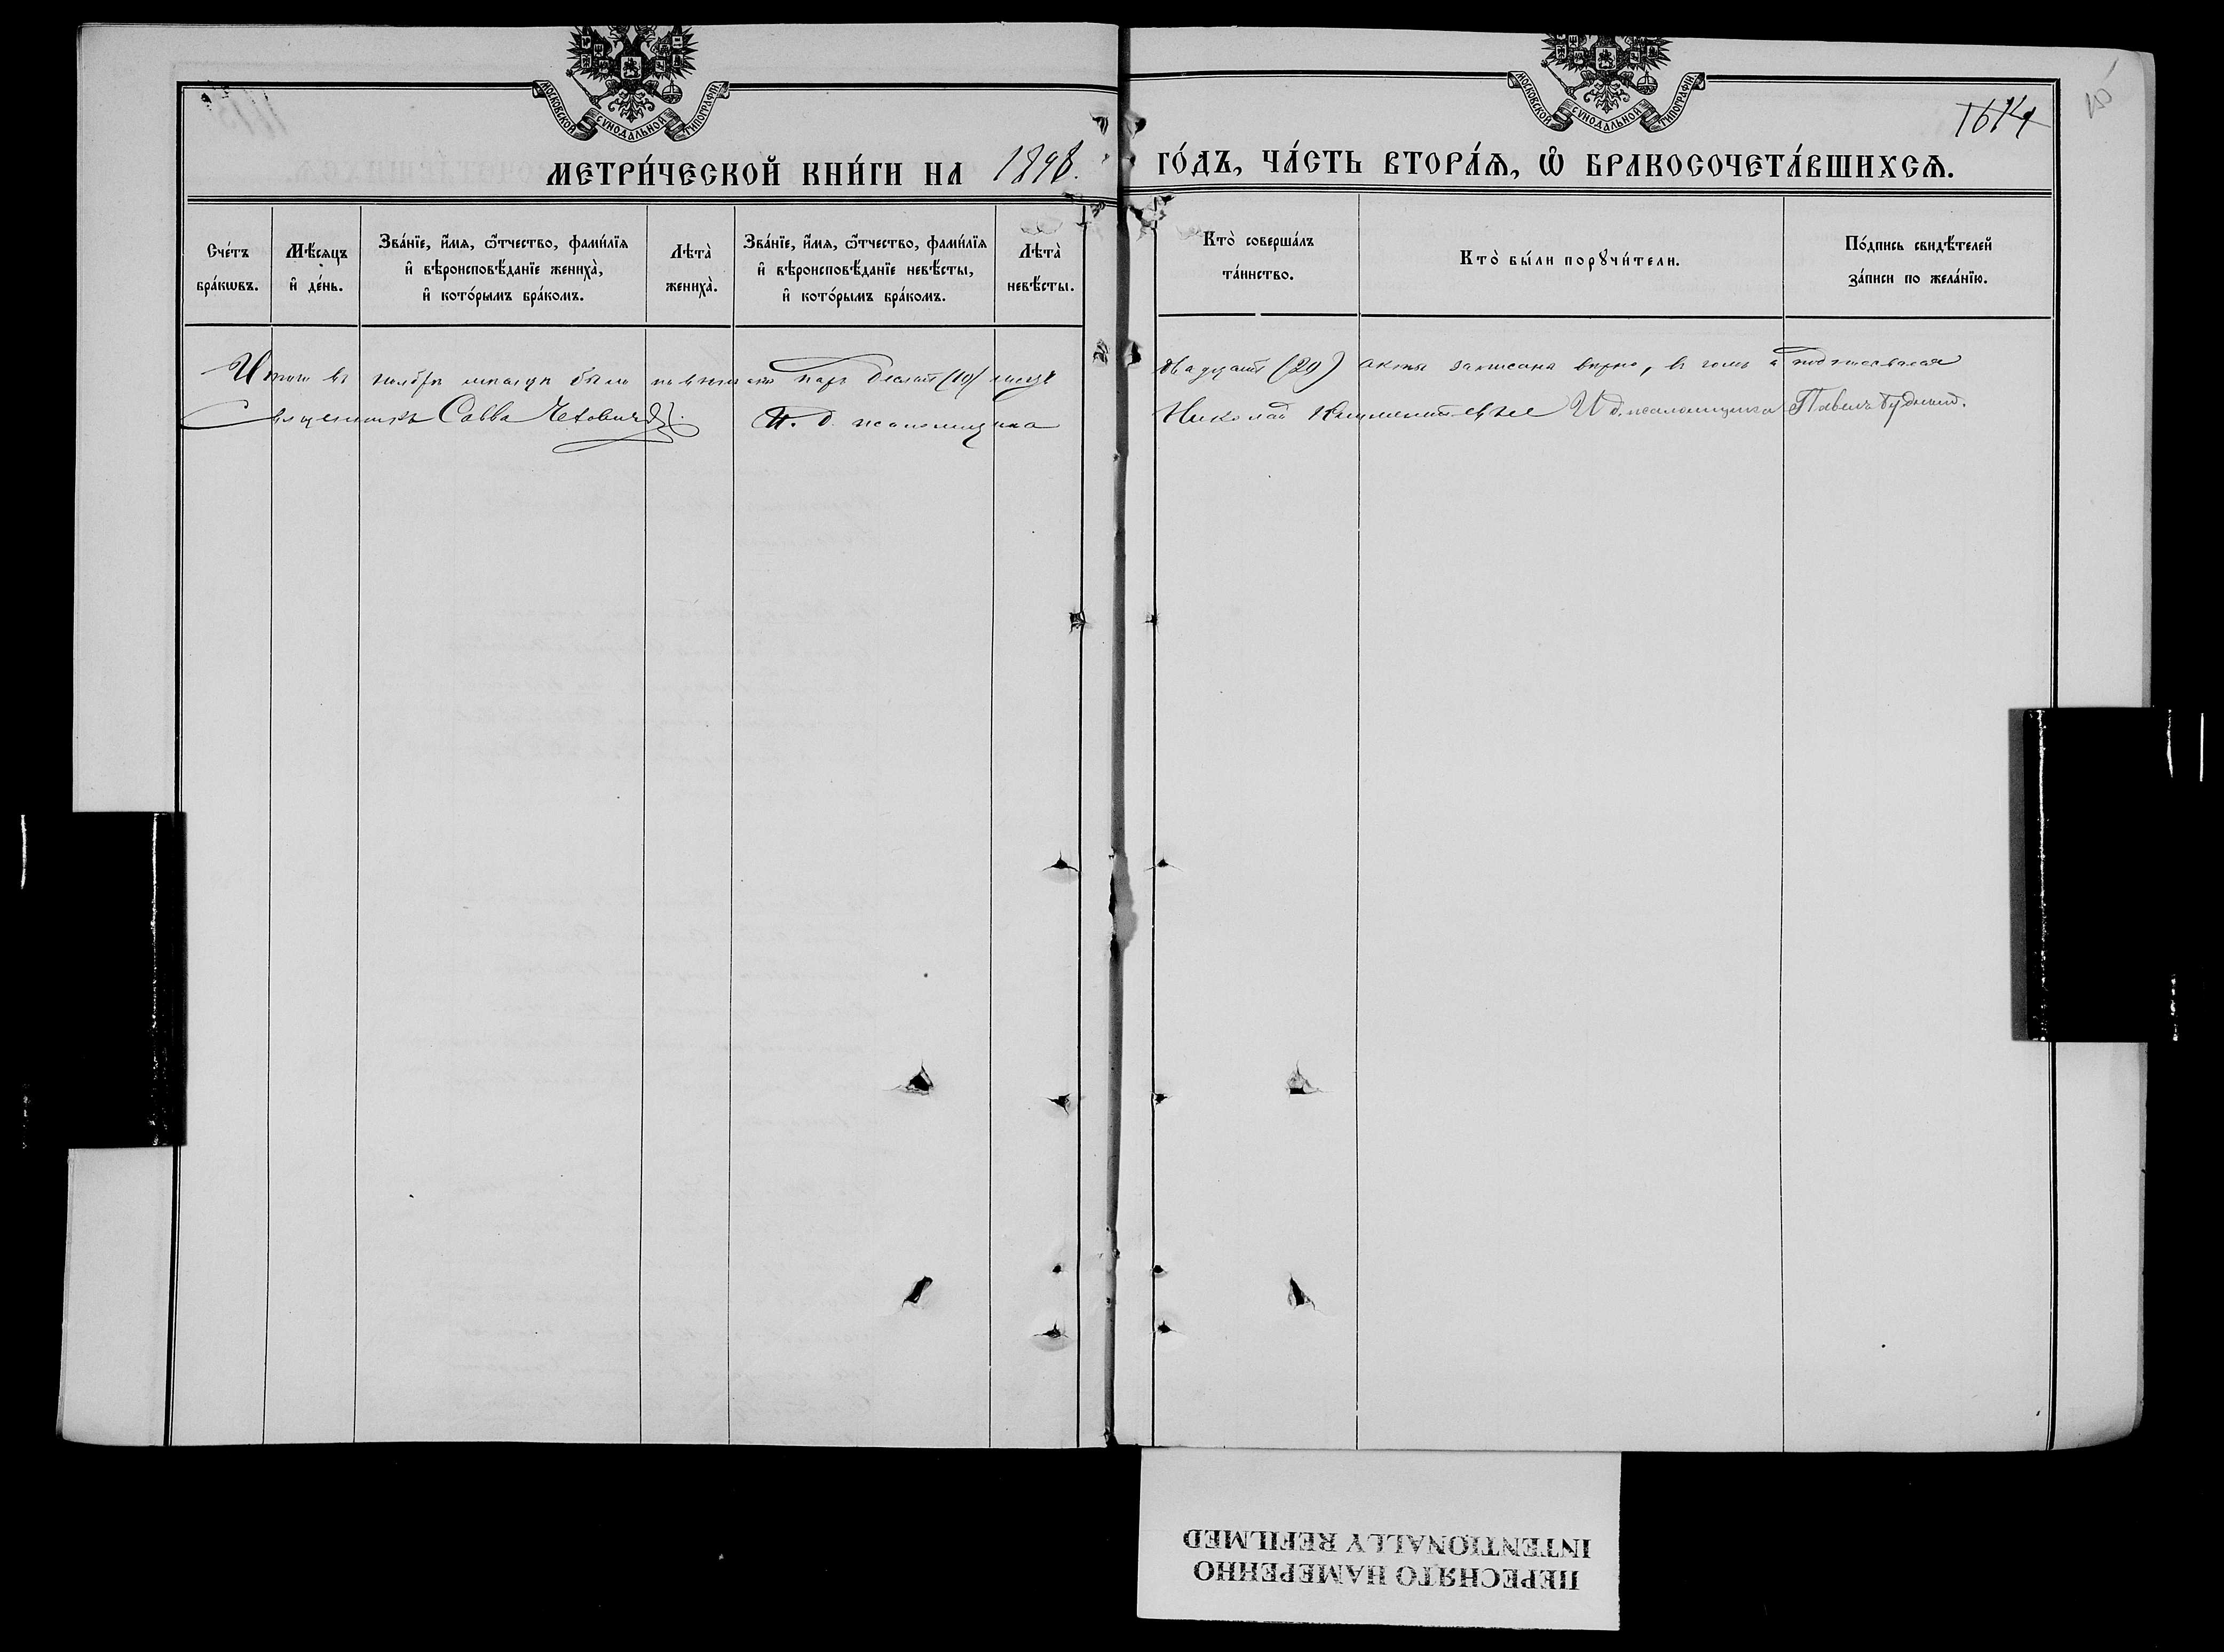 МОСКОВСКОЙ СУНОДАЛЬНОЙ ТИПОГРАФІИ
МОСКОВСКОЙ СУНОДАЛЬНОЙ ТИПОГРАФІИ
МЕТРИ́ЧЕСКОЙ КНИ́ГИ НА 1898. ГО́ДЪ, ЧА́СТЬ ВТОРА́Ѧ, Ѽ БРАКОСОЧЕТА́ВШИХСѦ.
Сче́тъ бра́кѡвъ.
Мѣ́сяцъ и҆ де́нь.
Зва́нїе, и҆́мѧ, ѻ҆́тчество, фами́лїѧ и҆ вѣроисповѣ́данїе жениха̀, и҆ кото́рымъ бра́комъ.
Лѣта̀ жениха̀.
Зва́нїе, и҆́мѧ, ѻ҆́тчество, фами́лїѧ и҆ вѣроисповѣ́данїе невѣ́сты, и҆ кото́рымъ бра́комъ.
Лѣта̀ невѣ́сты.
Кто̀ соверша́лъ та́инство.
Кто̀ бы́ли порꙋчи́тели.
По́дпись свидѣ́телей за́писи по жела́нїю.
Итого въ ноябрѣ мѣсяцѣ было повѣнчано паръ десять (10)
двадцать (20) акты записаны вѣрно, въ томъ и подписываемся
Священникъ Савва
И. д. псаломщика
Николай
И д. псаломщика Павелъ Будный.
ПЕРЕСНЯТО НАМЕРЕННО
INTENTIONALLY REFILMED